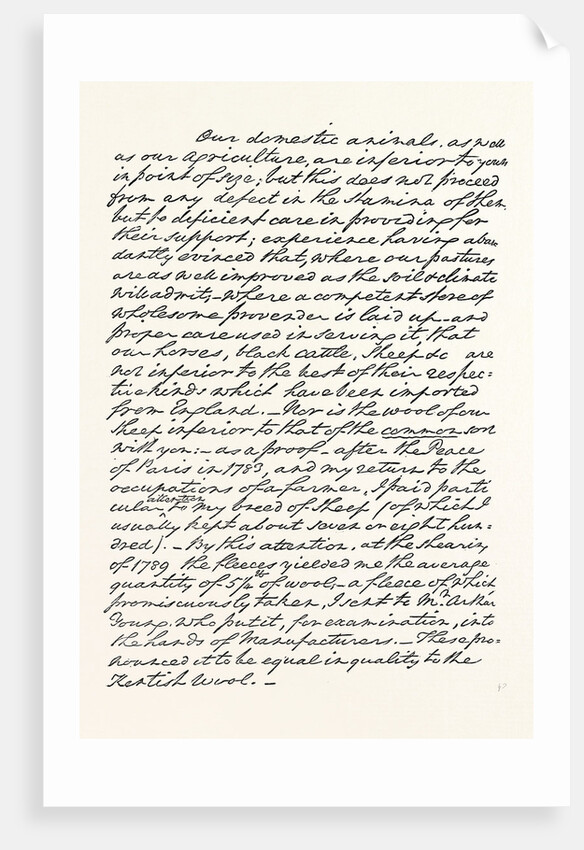 Our domestic animals, as well
as our agriculture, are inferior to yours
in point of size; but this does not proceed
from any defect in the stamina of them,
but to deficient care in providing for
their support; experience having abun
dantly evinced that, where our pastures
are as well improved as the soil & climate
will admit;—where a competent store of
wholesome provender is laid up—and
proper care used in serving it, that
our horses, black cattle, Sheep &c are
not inferior to the best of their respec=
tive kinds which have been imported
from England.—Nor is the wool of our
Sheep inferior to that of the common sort
with you:—as a proof—after the Peace
of Paris in 1783, and my return to the
occupations of a farmer, I paid parti
cular attention to my breed of Sheep (of which I
usually kept about seven or eight hun=
dred).—By this attention, at the shearing
of 1789 the fleeces yielded me the average
quantity of 5¼ lb of wool;—a fleece of which
promiscuously taken, I sent to Mr. Arthur
Young, who put it, for examination, into
the hands of Manufacturers.—These pro=
nounced it to be equal in quality to the
Kentish Wool.—